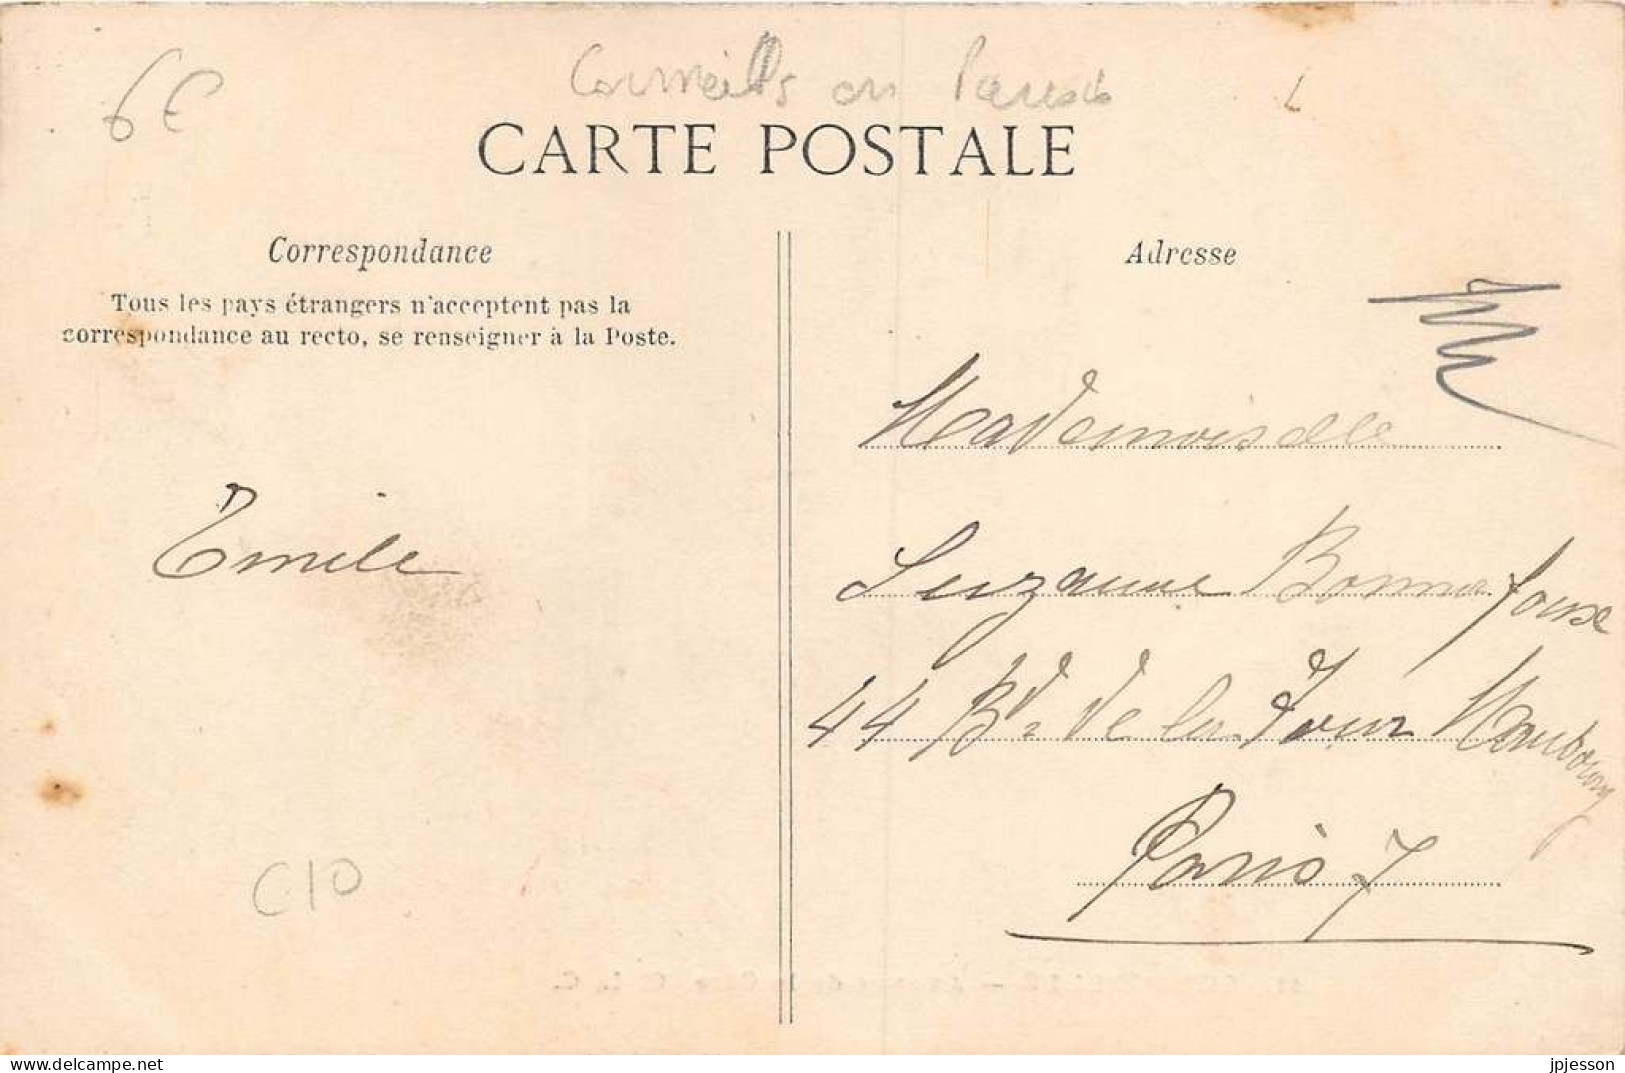 6€
Cormeilles en Parisis
CARTE POSTALE
Correspondance
Tous les pays étrangers n'acceptent pas la
correspondance au recto, se renseigner à la Poste.
Emile
C10
Adresse
Mademoiselle
Suzanne Bonnafouse
44 Bd de la Tour Maubourg
Paris 7
www.delcampe.net
jpjesson